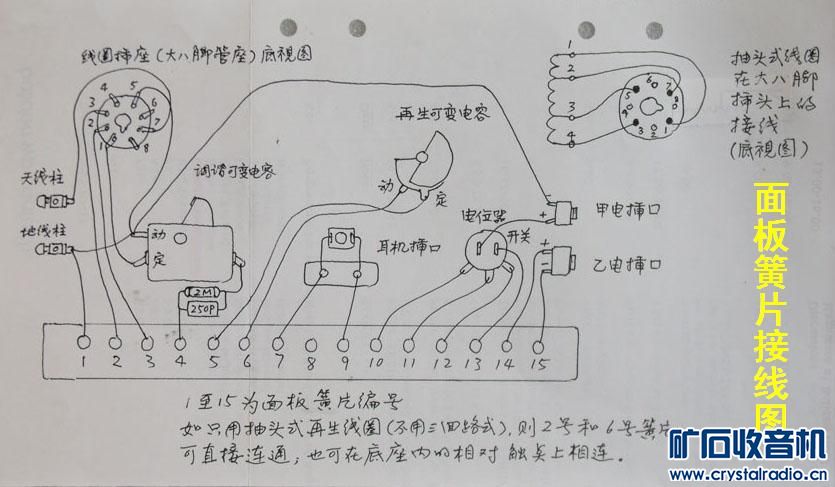 线圈插座(大八脚管座)底视图
4 5
3 6
2 7
1 8
天线柱
地线柱
调谐可变电容
动
定
再生可变电容
动 定
1
2
3
4
6 7
5 8
9
3 2 1
抽头式线圈
在大八脚
插头上的
接线
(底视图)
2M
250P
耳机插口
电位器
开关
- +
甲电插口
- +
乙电插口
1 2 3 4 5 6 7 8 9 10 11 12 13 14 15
1至15为面板簧片编号
如只用抽头式再生线圈(不用三回路式),则2号和6号簧片
可直接连通,也可在底座内的相对触点上相连。
面板簧片接线图
矿石收音机
www.crystalradio.cn